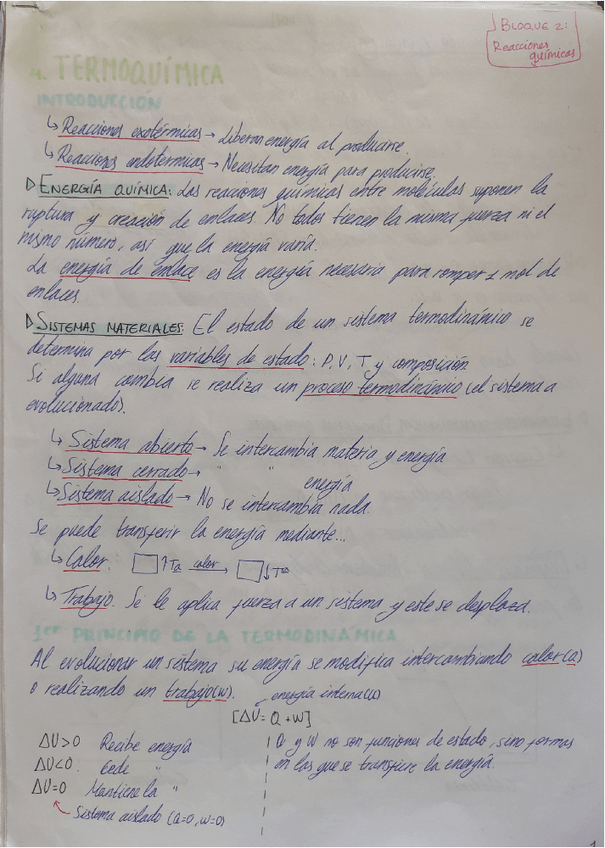 BLOQUE 2:
Reacciones
químicas
4. TERMOQUÍMICA
INTRODUCCIÓN
↳ Reacciones exotérmicas → Liberan energía al producirse.
↳ Reacciones endotérmicas → Necesitan energía para producirse.
▷ENERGÍA QUÍMICA: Las reacciones químicas entre moléculas suponen la
ruptura y creación de enlaces. No todos tienen la misma fuerza ni el
mismo número, así que la energía varía.
La energía de enlace es la energía necesaria para romper 1 mol de
enlaces.
▷SISTEMAS MATERIALES: El estado de un sistema termodinámico se
determina por las variables de estado: P, V, T y composición.
Si alguna cambia se realiza un proceso termodinámico (el sistema a
evolucionado).
↳ Sistema abierto → Se intercambia materia y energía
↳ Sistema cerrado → " " energía
↳ Sistema aislado → No se intercambia nada.
Se puede transferir la energía mediante...
↳ Calor. ↑Ta calor → ↓Ta
↳ Trabajo. Si le aplica fuerza a un sistema y este se desplaza.
1er PRINCIPIO DE LA TERMODINÁMICA
Al evolucionar un sistema su energía se modifica intercambiando calor(Q)
o realizando un trabajo(W).
energía interna(U)
[ΔU = Q + W]
ΔU>0 Recibe energía
ΔU<0 Cede "
ΔU=0 Mantiene la "
Sistema aislado (Q=0, W=0)
Q y W no son funciones de estado, sino formas
en las que se transfiere la energía.
1